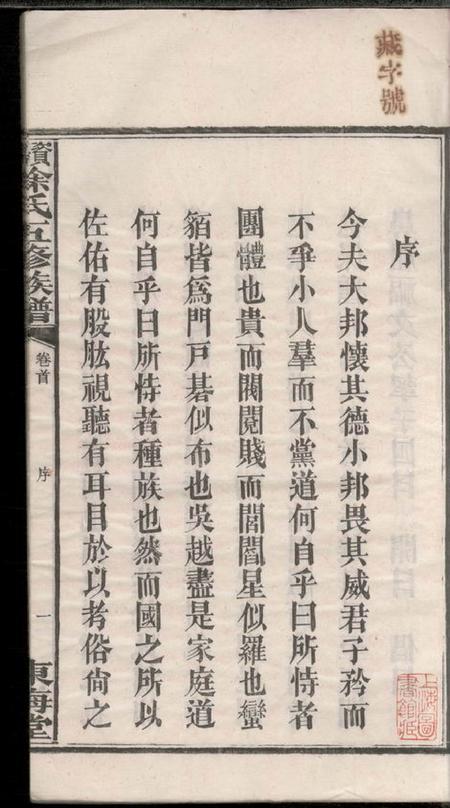 藏字號
序
今夫大邦懷其德小邦畏其威君子矜而
不爭小人羣而不黨道何自乎曰所恃者
團體也貴而閥閱賤而閭閻星似羅也蠻
貊皆爲門戸碁似布也吳越盡是家庭道
何自乎曰所恃者種族也然而國之所以
佐佑有股肱視聽有耳目於以考俗尙之
資徐氏五修族譜
卷首
序
一
東海堂
上海圖
書館藏